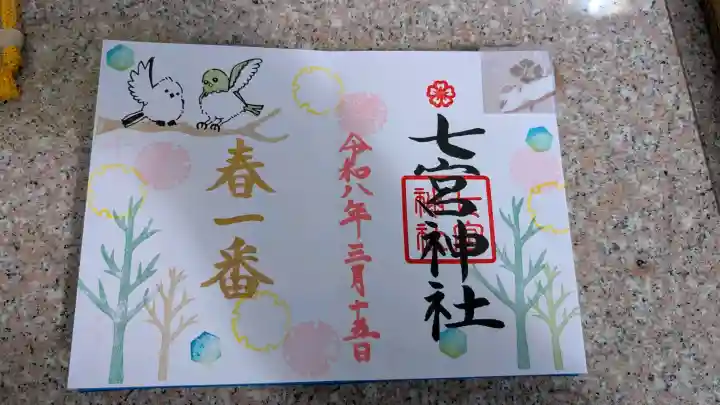 七宮神社
七宮神社
令和八年三月十五日
春一番